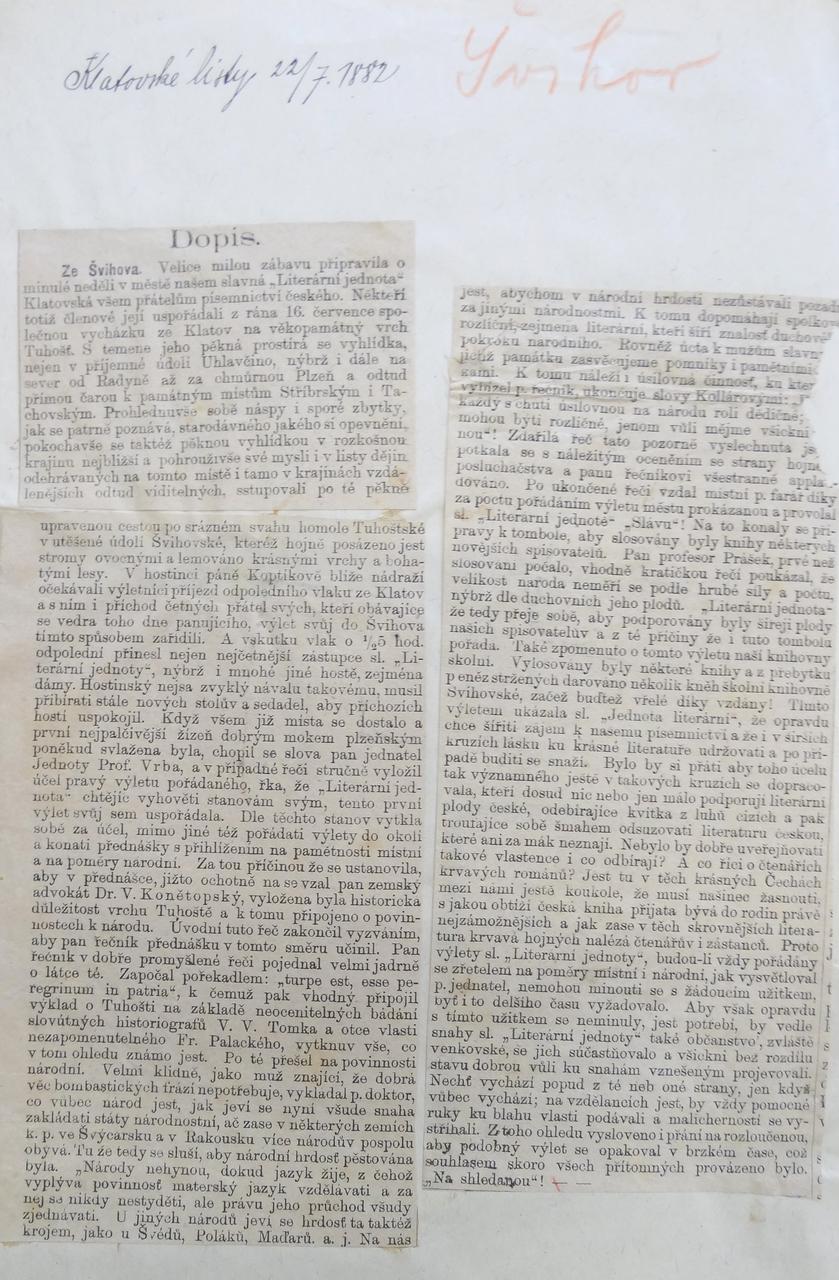 Klatovské listy 22/7. 1882
Švihov
Dopis.
Ze Švihova. Velice milou zábavu připravila o
minulé neděli v městě našem slavná „Literární jednota“
Klatovská všem přátelům písemnictví českého. Někteří
totiž členové její uspořádali z rána 16. července spo-
lečnou vycházku ze Klatov na věkopamátný vrch
Tuhošť. S temene jeho pěkná prostírá se vyhlídka,
nejen v příjemné údolí Úhlavčino, nýbrž i dále na
sever od Radyně až za chmúrnou Plzeň a odtud
přímou čarou k památným místům Stříbrským i Ta-
chovským. Prohlednuvše sobě náspy i sporé zbytky,
jak se patrně poznává, starodávného jakého si opevnění,
pokochavše se taktéž pěknou vyhlídkou v rozkošnou
krajinu nejbližší a pohrouživše své mysli i v listy dějin
odehrávaných na tomto místě i tamo v krajinách vzdá-
lenějších odtud viditelných, sstupovali po té pěkně
upravenou cestou po srázném svahu homole Tuhoštské
v utěšené údolí Švihovské, kteréž hojně posázeno jest
stromy ovocnými a lemováno krásnými vrchy a boha-
tými lesy. V hostinci páně Koptíkově blíže nádraží
očekávali výletníci příjezd odpoledního vlaku ze Klatov
a s ním i příchod četných přátel svých, kteří obávajíce
se vedra toho dne panujícího, výlet svůj do Švihova
tímto spůsobem zařídili. A vskutku vlak o ½5 hod.
odpolední přinesl nejen nejčetnější zástupce sl. „Li-
terární jednoty“, nýbrž i mnohé jiné hosté, zejména
dámy. Hostinský nejsa zvyklý návalu takovému, musil
přibírati stále nových stolův a sedadel, aby příchozích
hostí uspokojil. Když všem již místa se dostalo a
první nejpalčivější žízeň dobrým mokem plzeňským
poněkud svlažena byla, chopil se slova pan jednatel
Jednoty Prof. Vrba, a v případné řeči stručně vyložil
účel pravý výletu pořádaného, řka, že „Literární jed-
nota“ chtějíc vyhověti stanovám svým, tento první
výlet svůj sem uspořádala. Dle těchto stanov vytkla
sobě za účel, mimo jiné též pořádati výlety do okolí
a konati přednášky s přihlížením na pamětnosti místní
a na poměry národní. Za tou příčinou že se ustanovila,
aby v přednášce, jižto ochotně na se vzal pan zemský
advokát Dr. V. Konětopský, vyložena byla historická
důležitost vrchu Tuhoště a k tomu připojeno o povin-
nostech k národu. Úvodní tuto řeč zakončil vyzváním,
aby pan řečník přednášku v tomto směru učinil. Pan
řečník v dobře promyšlené řeči pojednal velmi jadrně
o látce té. Započal pořekadlem: „turpe est, esse pe-
regrinum in patria“, k čemuž pak vhodný připojil
výklad o Tuhošti na základě neocenitelných bádání
slovútných historiografů V. V. Tomka a otce vlasti
nezapomenutelného Fr. Palackého, vytknuv vše, co
v tom ohledu známo jest. Po té přešel na povinnosti
národní. Velmi klidně, jako muž znající, že dobrá
věc bombastických frází nepotřebuje, vykládal p. doktor,
co vůbec národ jest, jak jeví se nyní všude snaha
zakládati státy národnostní, ač zase v některých zemích
k. p. ve Švýcarsku a v Rakousku více národův pospolu
obývá. Tu že tedy se sluší, aby národní hrdost pěstována
byla. „Národy nehynou, dokud jazyk žije, z čehož
vyplývá povinnost mateřský jazyk vzdělávati a za
nej se nikdy nestyděti, ale právu jeho průchod všudy
zjednávati. U jiných národů jeví se hrdost ta taktéž
krojem, jako u Švédů, Poláků, Maďarů. a. j. Na nás
jest, abychom v národní hrdosti nezůstávali pozadu
za jinými národnostmi. K tomu dopomáhají spolkové
rozliční, zejmena literární, kteří šíří znalosť duchového
pokroku národního. Rovněž úcta k mužům slavn
jichž památku zasvěcujeme pomníky i pamětními
kami. K tomu náleží i úsilovná činnosť, ku kte
vybízel p. řečník, ukončuje slovy Kollárovými: „J
každý s chutí úsilovnou na národu roli dědičné;
mohou býti rozličné, jenom vůli mějme všickni
nou“! Zdařilá řeč tato pozorně vyslechnuta je
potkala se s náležitým oceněním se strany hojné
posluchačstva a panu řečníkovi všestranně appla-
dováno. Po ukončené řeči vzdal místní p. farář díky
za poctu pořádáním výletu městu prokázanou a provolal
sl. „Literární jednotě“ „Slávu“! Na to konaly se při-
pravy k tombole, aby slosovány byly knihy některých
novějších spisovatelů. Pan profesor Prášek, prvé než
slosování počalo, vhodně kratičkou řečí poukázal, že
velikost národa neměří se podle hrubé síly a počtu,
nýbrž dle duchovních jeho plodů. „Literární jednota“
že tedy přeje sobě, aby podporovány byly šířeji plody
našich spisovatelův a z té příčiny že i tuto tombolu
pořádá. Také zpomenuto o tomto výletu naší knihovny
školní. Vylosovány byly některé knihy a z přebytku
peněz stržených darováno několik kněh školní knihovně
Švihovské, začež budtež vřelé díky vzdány! Tímto
výletem ukázala sl. „Jednota literární“, že opravdu
chce šířiti zájem k našemu písemnictví a že i v širších
kruzích lásku ku krásné literatuře udržovati a po pří-
padě buditi se snaží. Bylo by si přáti aby toho účelu
tak významného ještě v takových kruzích se dopraco-
vala, kteří dosud nic nebo jen málo podporují literární
plody české, odebírajíce kvítka z luhů cizích a pak
troufajíce sobě šmahem odsuzovati literaturu českou,
které ani za mák neznají. Nebylo by dobře uveřejňovati
takové vlastence i co odbírají? A co říci o čtenářích
krvavých románů? Jest tu v těch krásných Čechách
mezi námi ještě koukole, že musí našinec žasnouti,
s jakou obtíží česká kniha přijata bývá do rodin právě
nejzámožnějších a jak zase v těch skrovnějších litera-
tura krvavá hojných nalézá čtenářův i zástanců. Proto
výlety sl. „Literární jednoty“, budou-li vždy pořádány
se zřetelem na poměry místní i národní, jak vysvětloval
p. jednatel, nemohou minouti se s žádoucím užitkem,
byť i to delšího času vyžadovalo. Aby však opravdu
s tímto užitkem se neminuly, jest potřebí, by vedle
snahy sl. „Literární jednoty“ také občanstvo, zvláště
venkovské, se jich súčastňovalo a všickni bez rozdílu
stavu dobrou vůli ku snahám vznešeným projevovali.
Nechť vychází popud z té neb oné strany, jen když
vůbec vychází; na vzdělancích jest, by vždy pomocné
ruky ku blahu vlasti podávali a malicherností se vy-
stříhali. Z toho ohledu vysloveno i přání na rozloučenou,
aby podobný výlet se opakoval v brzkém čase, což
souhlasem skoro všech přítomných provázeno bylo.
„Na shledanou“!